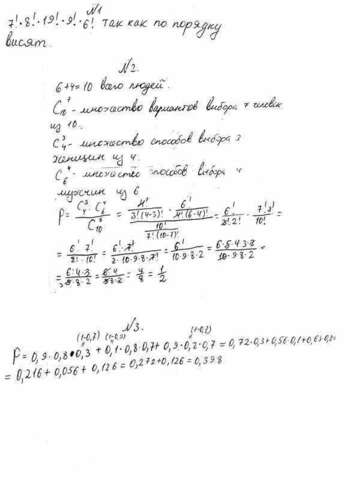 N1
7! · 8! · 19! · 9! · 6! так как по порядку
висят.
N2.
6+4=10 всего людей.
C₁₀⁷ - множество вариантов выбора 7 человек
из 10.
C₄³ - множество способов выбора 3
женщин из 4.
C₆⁴ - множество способов выбора 4
мужчин из 6
P = (C₄³ · C₆⁴) / C₁₀⁷ = (4! / 3!(4-3)! · 6! / 4!(6-4)!) / (10! / 7!(10-7)!) = 6! / 3!·2! · 7!3! / 10! =
= 6! · 7! / 2! · 10! = 6! · 7! / 2 · 10·9·8·7! = 6! / 10·9·8·2 = 6·5·4·3·2 / 10·9·8·2 =
= 4/8 = 1/2
N3.
(1-0,7) (1-0,2)
P = 0,9 · 0,8 · 0,3 + 0,1 · 0,8 · 0,7 + 0,9 · 0,2 · 0,7 = 0,72·0,3+0,56·0,1+
= 0,216 + 0,056 + 0,126 = 0,272+0,126 = 0,398